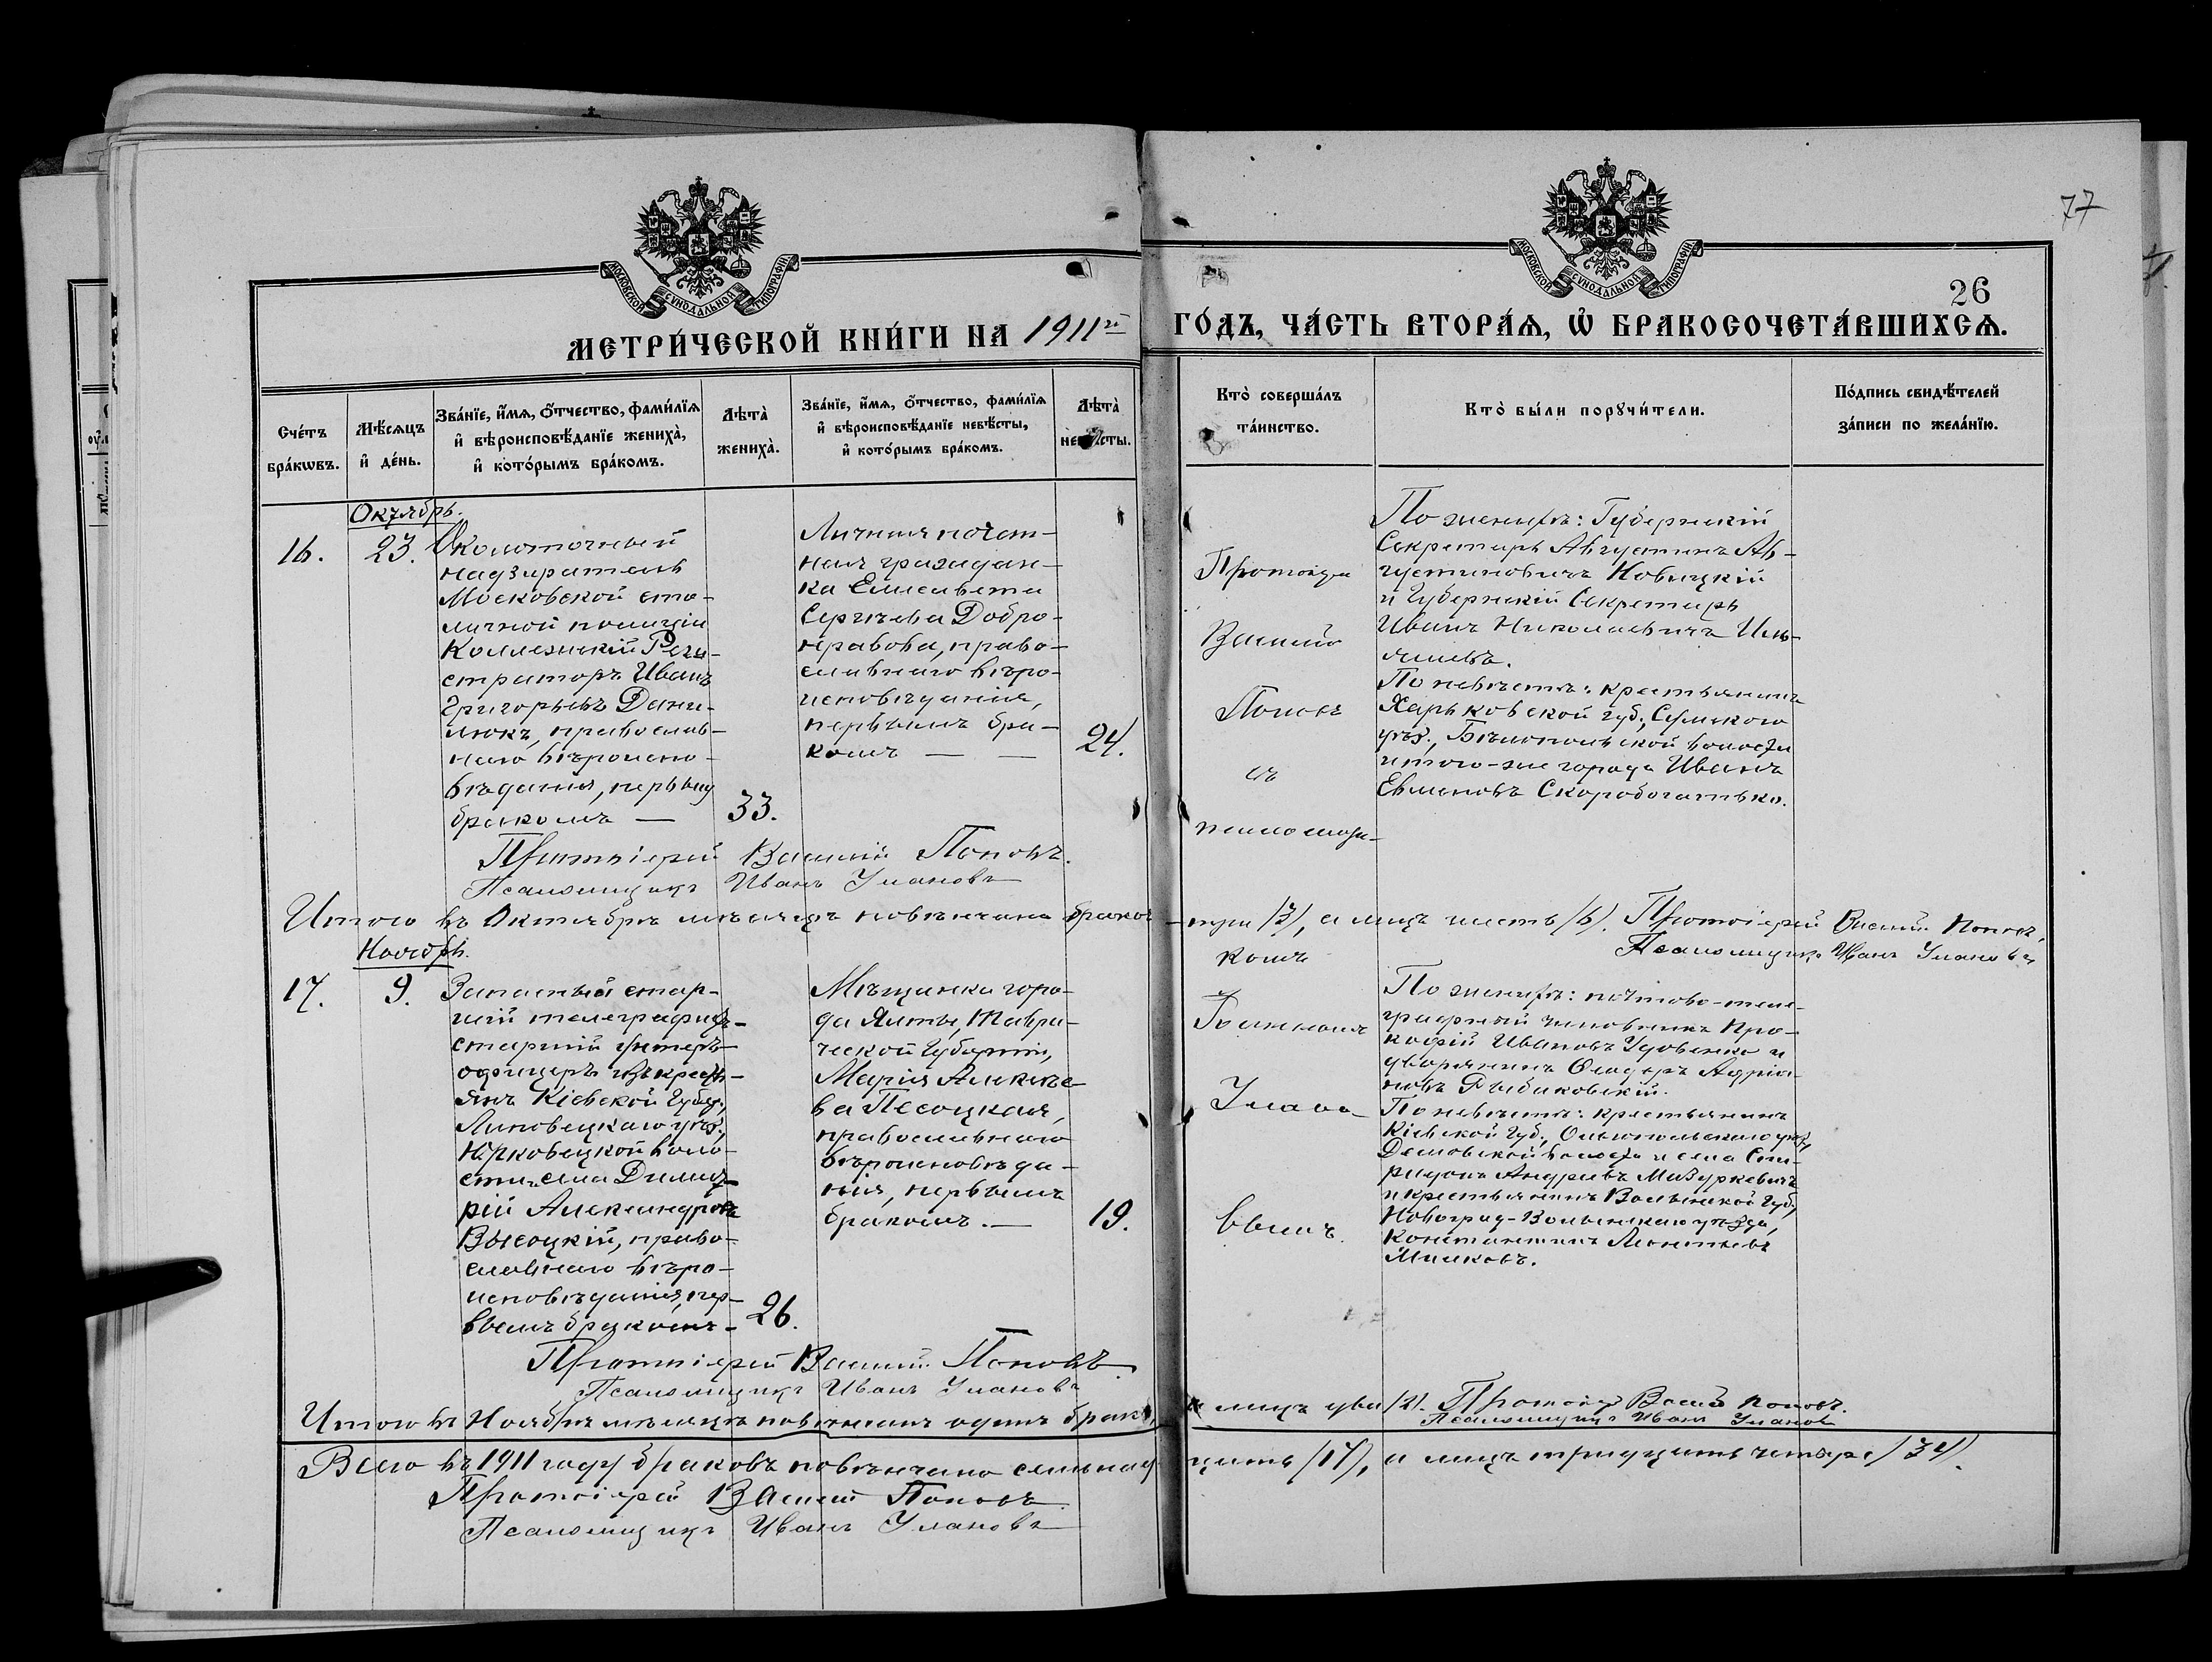 77
МОСКОВСКОЙ СУНОДАЛЬНОЙ ТИПОГРАФІИ
МОСКОВСКОЙ СУНОДАЛЬНОЙ ТИПОГРАФІИ
26
МЕТРИ́ЧЕСКОЙ КНИ́ГИ НА 1911й ГО́ДЪ, ЧА́СТЬ ВТОРА́Ѧ, Ѡ҆ БРАКОСОЧЕТА́ВШИХСѦ.
Сче́тъ
бра́кѡвъ.
Мѣ́сѧцъ
и҆ де́нь.
Зва́нїе, и҆́мѧ, ѻ҆́тчество, фами́лїѧ
и҆ вѣроисповѣ́данїе жениха̀,
и҆ кото́рымъ бра́комъ.
Лѣта̀
жениха̀.
Зва́нїе, и҆́мѧ, ѻ҆́тчество, фами́лїѧ
и҆ вѣроисповѣ́данїе невѣ́сты,
и҆ кото́рымъ бра́комъ.
Лѣта̀
невѣ́сты.
Кто̀ соверша́лъ
та́инство.
Кто̀ бы́ли порꙋчи́тели.
По́дпись свидѣ́телей
за́писи по жела́нїю.
Октябрь.
16.
23.
Околоточный
надзиратель
Московской сто-
личной полиціи
Коллежскій Реги-
страторъ Иванъ
Григорьевъ Дани-
люкъ, православ-
наго вѣроиспо-
вѣданія, первымъ
бракомъ —
33.
Личная почет-
ная граждан-
ка Елисавета
Сергѣева Добро-
нравова, право-
славнаго вѣро-
исповѣданія,
первымъ бра-
комъ — —
24.
Протоіерей
Василій
Поповъ
съ
псаломщи-
комъ
Іоанномъ
Улано-
вымъ.
По женихѣ: Губернскій
Секретарь Августинъ Ав-
густиновичъ Новицкій
и Губернскій Секретарь
Иванъ Николаевичъ Иль-
яшевъ.
По невѣстѣ: крестьянинъ
Харьковской губ., Сумского
уѣз., Бѣлопольской волости
и того-же города Иванъ
Евменовъ Скоробогатько.
Протоіерей Василій Поповъ.
Псаломщикъ Иванъ Улановъ
Итого въ Октябрѣ мѣсяцѣ повѣнчано браковъ - три /3/, а лицъ шесть /6/. Протоіерей Василій Поповъ.
Псаломщикъ Иванъ Улановъ
Ноябрь.
17.
9.
Запасный стар-
шій телеграфистъ-
старшій унтеръ-
офицеръ изъ кресть-
янъ Кіевской Губер.,
Липовецкаго уѣз.,
Юрковецкой воло-
сти и села Димит-
рій Александровъ
Высоцкій, право-
славнаго вѣро-
исповѣданія, пер-
вымъ бракомъ -
26.
Мѣщанка горо-
да Ялты, Таври-
ческой Губерніи,
Марія Алексѣе-
ва Песоцкая,
православнаго
вѣроисповѣда-
нія, первымъ
бракомъ. —
19.
По женихѣ: почтово-теле-
графный чиновникъ Про-
кофій Ивановъ Удовенко и
дворянинъ Ѳедоръ Адріа-
новъ Рыбаковскій.
По невѣстѣ: крестьянинъ
Кіевской Губ., уѣз.,
волости и села Спи-
ридонъ Андреевъ Мазуркевичъ
и крестьянинъ Волынской Губ.,
Новоград-Волынскаго уѣзда,
Константинъ Леонтьевъ
Протоіерей Василій Поповъ.
Псаломщикъ Иванъ Улановъ
Итого въ Ноябрѣ мѣсяцѣ повѣнчанъ одинъ бракъ, а лицъ два /2/. Протоіер Васил Поповъ.
Псаломщикъ Иванъ Улановъ
Всего въ 1911 году браковъ повѣнчано семьнад цать /17/, а лицъ тридцать четыре /34/.
Протоіерей Василій Поповъ.
Псаломщикъ Иванъ Улановъ